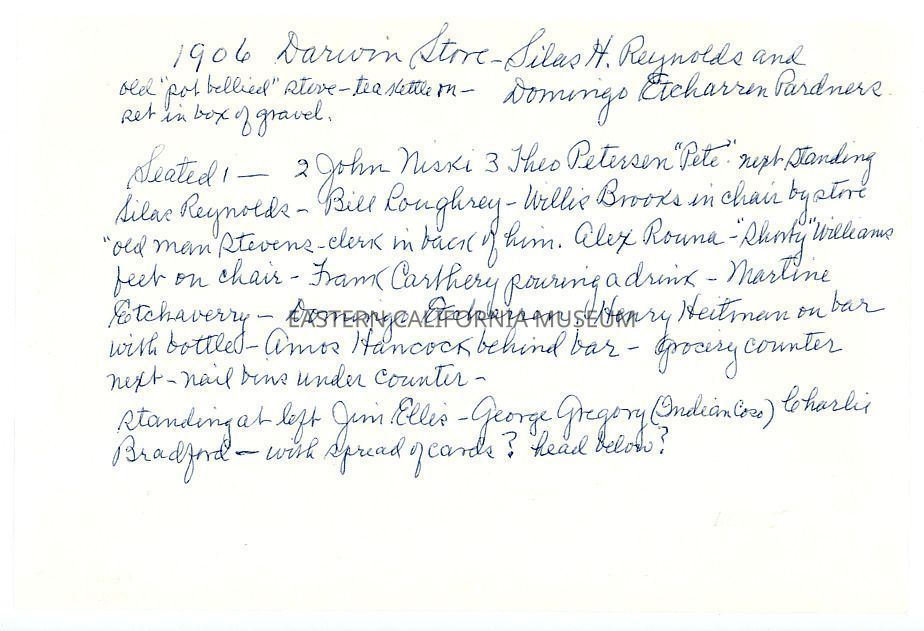 1906 Darwin Store - Silas H. Reynolds and
old "pot bellied" stove - tea kettle on - Domingo Etcharren Pardners
set in box of gravel.
Seated 1 — 2 John Niski 3 Theo Petersen "Pete" next standing
Silas Reynolds - Bill Loughrey - Willis Brooks in chair by stove
"old man Stevens - clerk in back of him. Alex Rouna - "Shorty" Williams
feet on chair - Frank Carthery pouring a drink - Martine
Etchaverry - Domingo Etcharren Henry Heitman on bar
EASTERN CALIFORNIA MUSEUM
with bottle - Amos Hancock behind bar - grocery counter
next - nail bins under counter -
Standing at left Jim Ellis - George Gregory (Indian Coso) Charlie
Bradford - with spread of cards? head below?